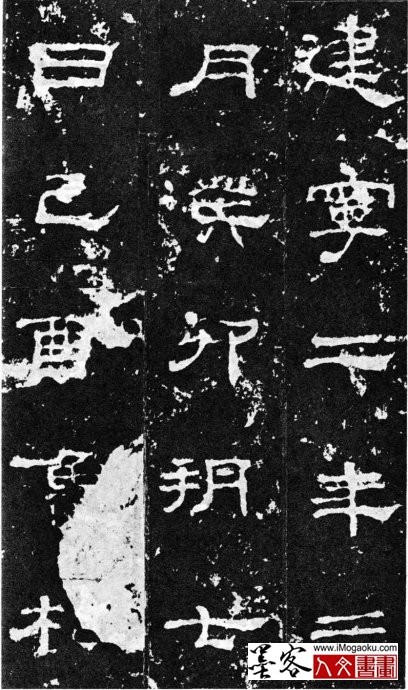 建寧二年
月癸卯朔七
日己酉
www.iMogaoku.com
墨客 人文書畫